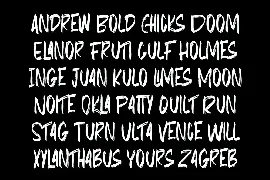 ANDREW BOLD CHICKS DOOM
ELANOR FRUTI GULF HOLMES
INGE JUAN KULO LIMES MOON
NOITE OKLA PATTY QUILT RUN
STAG TURN ULTA VENCE WILL
XYLANTHABUS YOURS ZAGREB